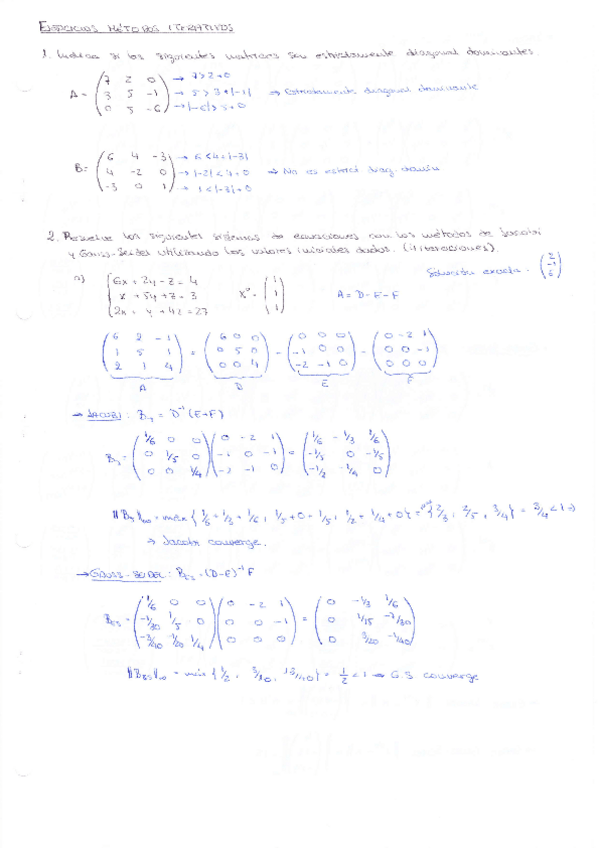 EJERCICIOS MÉTODOS ITERATIVOS
1. Indica si las siguientes matrices son estrictamente diagonal dominantes.
A = ( 7 2 0 ) → 7 > 2 + 0
( 3 5 -1 ) → 5 > 3 + |-1| ⇒ Estrictamente diagonal dominante
( 0 5 -6 ) → |-6| > 5 + 0
B = ( 6 4 -3 ) → 6 < 4 + |-3|
( 4 -2 0 ) → |-2| < 4 + 0 ⇒ No es estrict. diag. domin.
( -3 0 1 ) → 1 < |-3| + 0
2. Resuelve los siguientes sistemas de ecuaciones con los métodos de Jacobi
y Gauss-Seidel utilizando los valores iniciales dados. (iteraciones).
Solución exacta = ( 2 -1 6 )
a) { 6x + 2y - z = 4
x + 5y + z = 3 x⁰ = ( 1 1 1 ) A = D - E - F
2x + y + 4z = 27
( 6 2 -1 ) ( 6 0 0 ) ( 0 0 0 ) ( 0 -2 1 )
( 1 5 1 ) = ( 0 5 0 ) - ( -1 0 0 ) - ( 0 0 -1 )
( 2 1 4 ) ( 0 0 4 ) ( -2 -1 0 ) ( 0 0 0 )
A D E F
→ JACOBI: B_J = D⁻¹ (E+F)
( 1/6 0 0 ) ( 0 -2 1 ) ( 1/6 -1/3 1/6 )
B_J = ( 0 1/5 0 ) ( -1 0 -1 ) = ( -1/5 0 -1/5 )
( 0 0 1/4 ) ( -2 -1 0 ) ( -1/2 -1/4 0 )
||B_J||∞ = máx { 1/6 + 1/3 + 1/6, 1/5 + 0 + 1/5, 1/2 + 1/4 + 0 } = máx { 2/3, 2/5, 3/4 } = 3/4 < 1 ⇒
→ Jacobi converge.
→ GAUSS-SEIDEL: B_GS = (D-E)⁻¹ F
( 1/6 0 0 ) ( 0 -2 1 ) ( 0 -1/3 1/6 )
B_GS = ( -1/30 1/5 0 ) ( 0 0 -1 ) = ( 0 1/15 -7/30 )
( -3/40 -1/20 1/4 ) ( 0 0 0 ) ( 0 3/20 -1/40 )
||B_GS||∞ = máx { 1/2, 3/10, } = 1/2 < 1 → G.S. converge